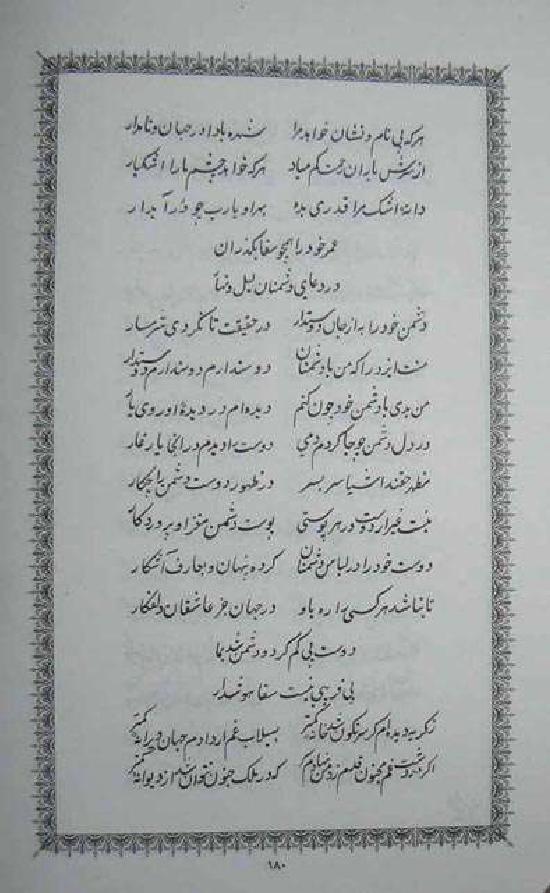 هرکه بی نام و نشان خواهد مرا شده بادا در جهان و نامدار
از سرش باران رحمت کم مباد هرکه خواهد چشم ما را اشکبار
دانهٔ اشک مرا قدری بده بهر او یارب چو در آبدار
عمر خود را همچو سقا بگذران
در دعای دشمنان لیل و نهار
دشمن خود را به از جان دوستدار در حقیقت تا نگردی شرمسار
منت ایزد را که من با دشمنان دوستدارم دوستدارم دوستدار
من بدی با دشمن خود چون کنم دیده‌ام در دیدهٔ او روی یار
در دل دشمن چو جا کردم دمی دوست را دیدم در آنجا یار غار
مظهر حقند اشیا سر بسر در ظهور دوست دشمن را چکار
نیست غیر از دوست در هر پوستی پوست دشمن مغز او پروردگار
دوست خود را در لباس دشمنان کرده پنهان و بعارف آشکار
تا نباشد هر کسی را ره باو در جهان جز عاشقان دلفکار
دوست بی کم کرد و دشمن شد بما
بی فریبی نیست سقا هوشدار
ز گریه دیده‌ام گر سرنگون شد خانه کمتر بسیلاب غم ار دادم جهان ویرانه کمتر
اگر غم مجنون قلم زد من که در ملک جنون نتوان شد از دیوانه کمتر
۱۸۰